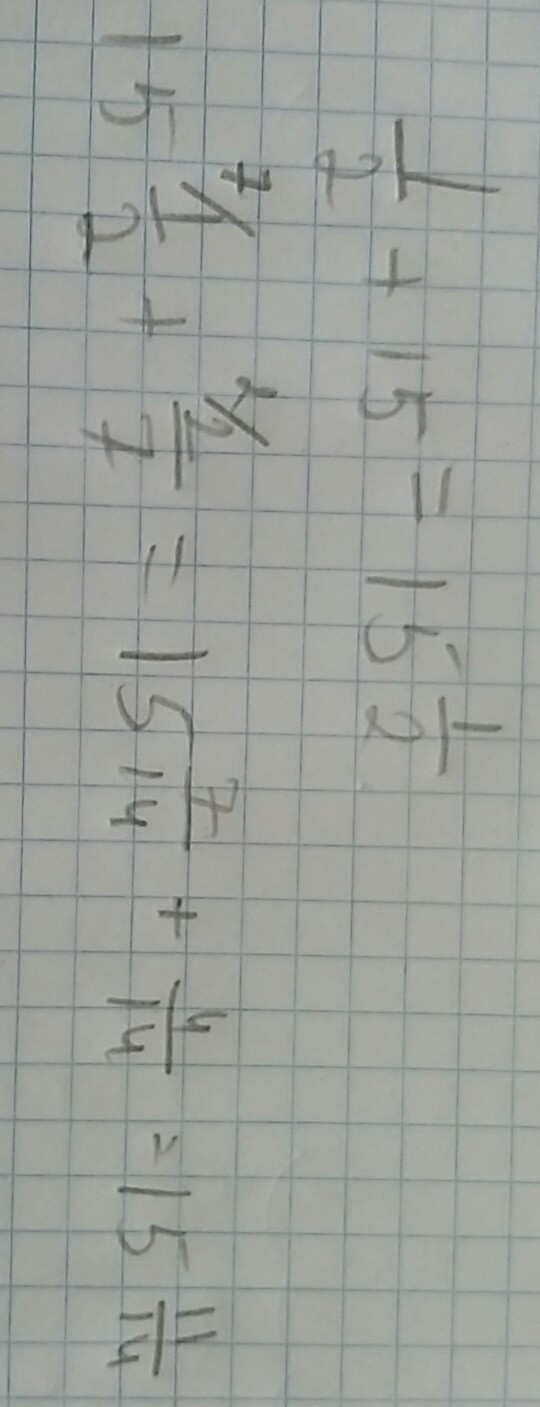 1/2 + 15 = 15 1/2
15 ⁷⁄1/2 + ²⁄2/7 = 15 7/14 + 4/14 = 15 11/14